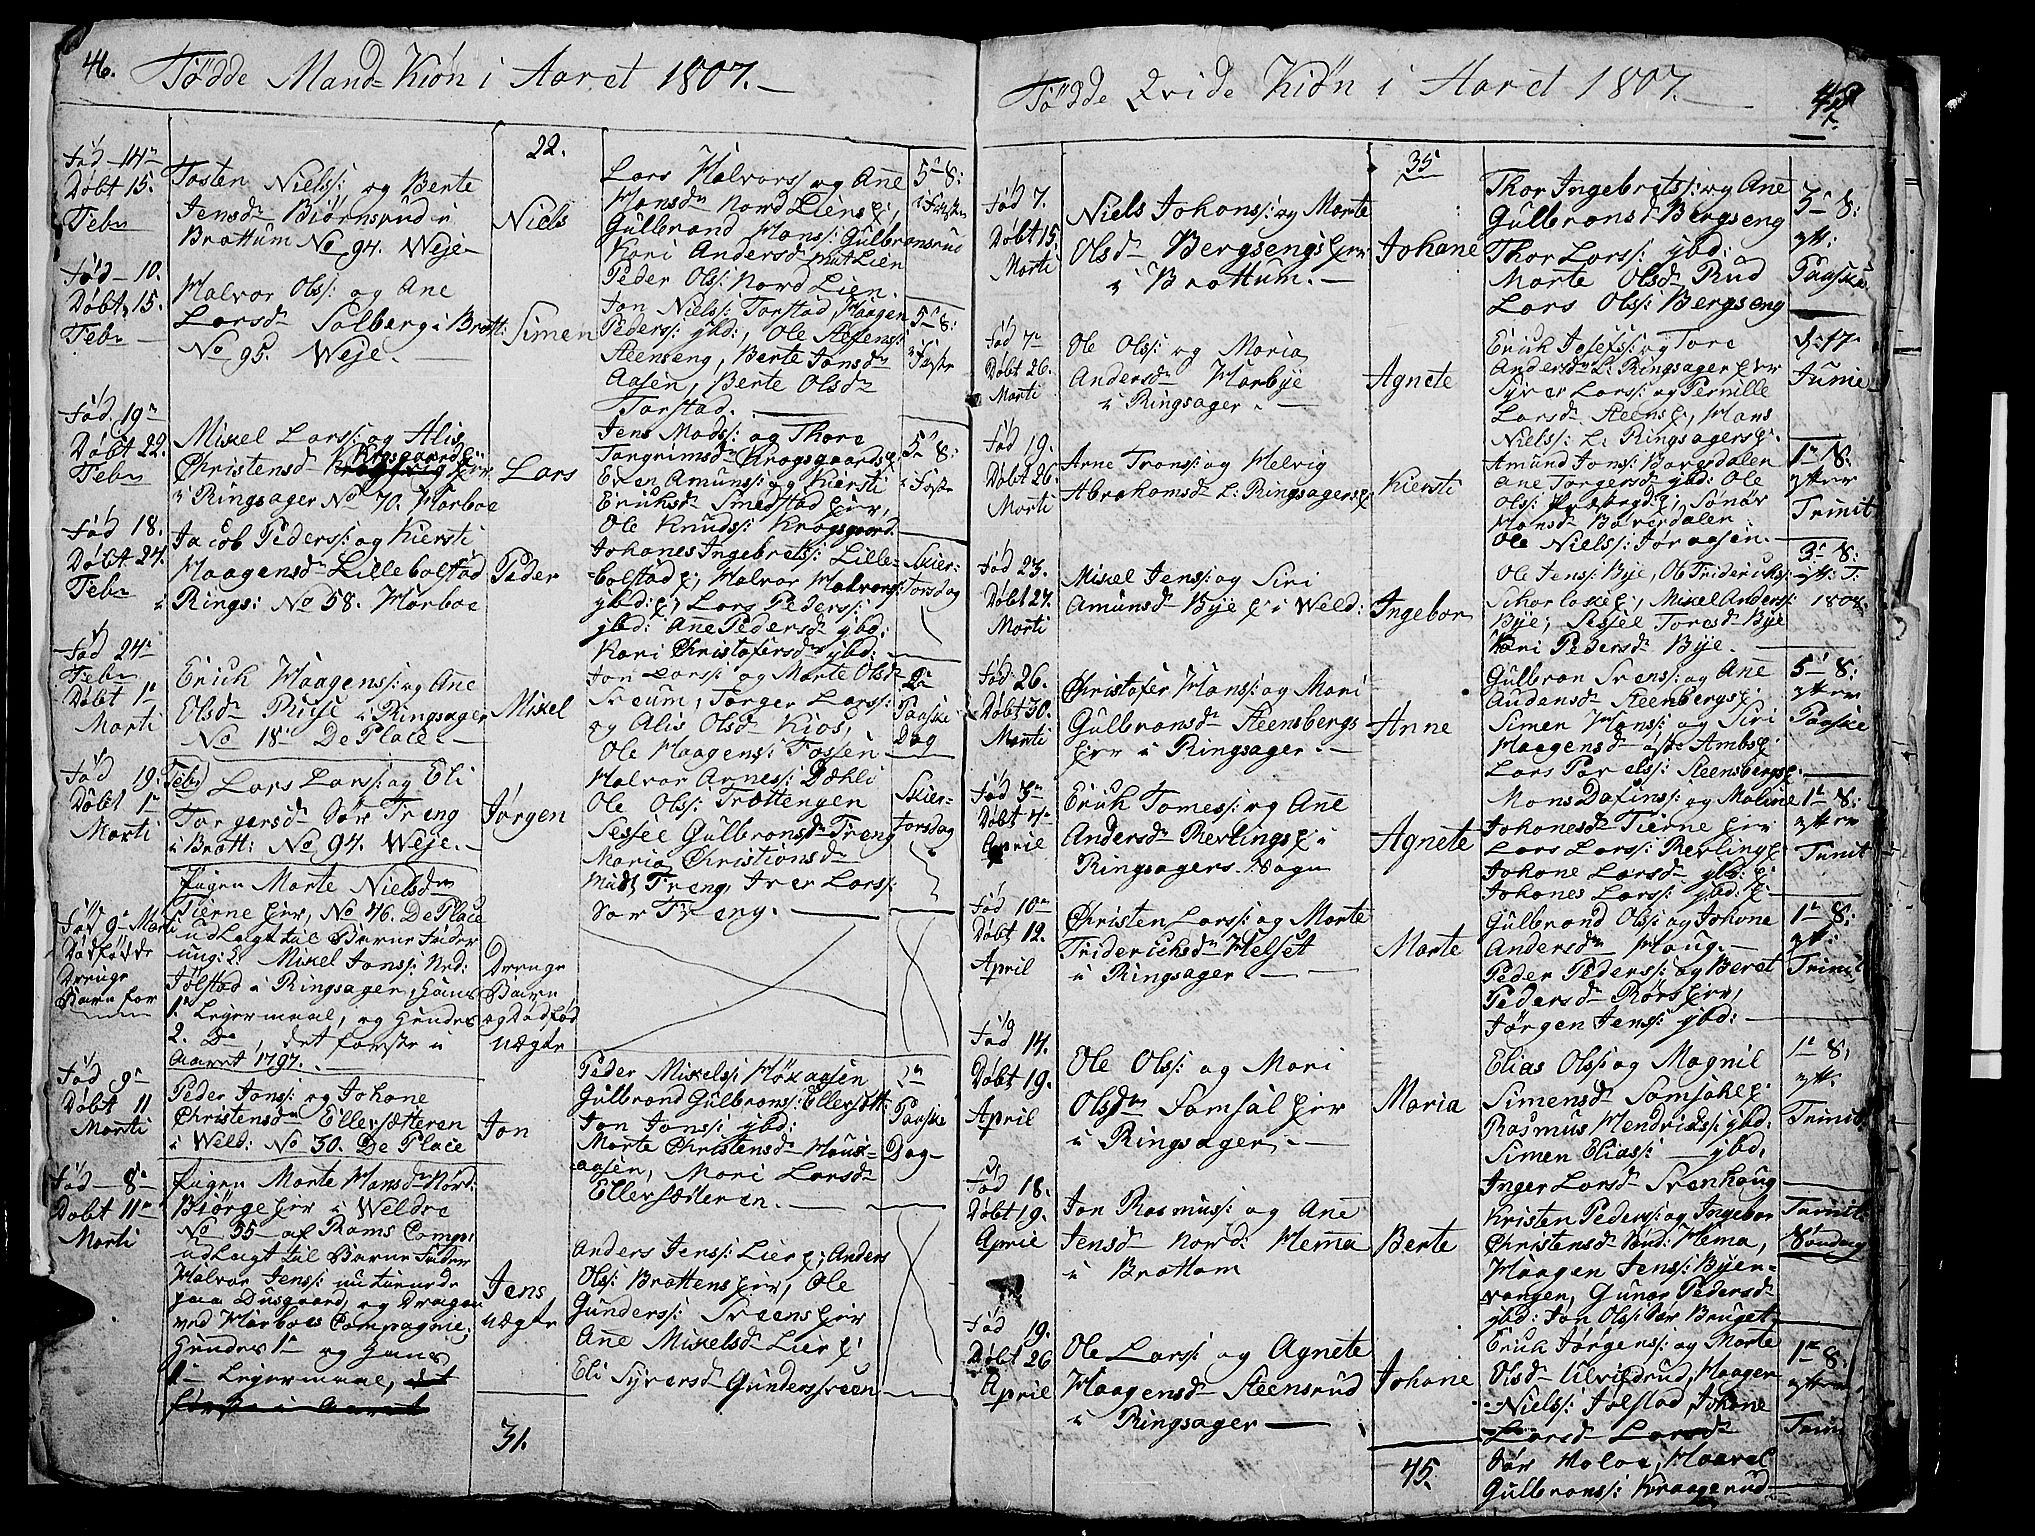 46.
Fødde Mand-Kiøn i Aaret 1807.-
22.
Fød 14n
Døbt 15.
Febr
Tosten Nielss: og Berte
Jensdr Biørnsrud i
Brøttum No 94. Weje-
Niels
Lars Halvorss og Ane
Hansdr Nord Liens
Gulbrand Hanss: Gulbransrud
Kari Andersdr Lien
Peder Olss: Nord Lien.
5n 8:
i Faste
Fød 10.
Døbt 15.
Febr
Halvor Olss: og Ane
Larsdr Solberg i Brøtt:
No 95. Weje.
Simen
Jon Nielss: Torstad, Haagen
Pederss: ybd:, Ole Stefens:
Steenseng, Berte Jonsdr
Aasen, Berte Olsdr
Torstad.
5n 8:
i Faste
Fød 19n
Døbt 22.
Febr
Mikel Larss: og Alis
Christensdr Krogsgaard
i Ringsager No 70. Harboe
Lars
Jens Madss: og Thore
Torgrimsdr Krogsgaards
Even Amunss: og Kiersti
Eriksdr Smedstad
Ole Knudss: Krogsgaard.
5n 8:
i Faste
Fød 18.
Døbt 24.
Febr
Jacob Pederss: og Kiersti
Haagensdr Lillebolstad
i Rings: No 58. Harboe
Peder
Johanes Ingebretss: Lille-
bolstad, Halvor Halvorss:
ybd:, Lars Pederss:
ybd: Ane Pedersdr ybd:
Kari Christofersdr ybd:
Skier-
torsdag
Fød 24n
Febr
Døbt 1n
Marti
Erick Haagenss: og Ane
Olsdr Ruse i Ringsager
No 18n De Place.-
Mikel
Jon Larss: og Marte Olsdr
Sveum, Torger Larss:
og Alis Olsdr Kios,
Ole Haagenss: Fossen
Halvor Arness: Dæhli
2n
Paaske
Dag
Fød 19: Febr
Døbt 1n
Marti
Lars Larss: og Eli
Torgersdr Sør Freng
i Brøtt: No 94. Weje.-
Jørgen
Ole Olss: Trættengen
Sessee Gulbransdr Freng
Maria Christiansdr
Midt Freng, Iver Larss:
Sør Freng.
Skier-
torsdag
Fød 9n Marti
Dødfødde
Drenge
Barn
Pigen Marte Nielsdr
Tierne, No 46. De Place
udlagt til Barne Fader
ung: K. Mikel Jonss: Ned:
Jølstad i Ringsager, hans
1. Leyermaal, og hendes
2. Do det første i
Aaret 1797.
Drenge
Barn
og Dødfød
uægte
Fød 9n
Døbt 11
Marti
Peder Jonss: og Johane
Christensdr Ellersætteren
i Weld: No 30. De Place
Jon
Peder Mikelss: Høxaasen
Gulbrand Gulbranss: Ellersett:
Jon Jonss: ybd:
Marte Christensdr Houx-
aasen, Mari Larsdr
Ellersæteren.
2n
Paaske
Dag
Fød 8n
Døbt 11n
Marti
Pigen Marte Hansdr Nord:
Biørge i Weldre
No 35 af Rams Comp:
udlagt til Barne Fader
Halvor Jenss:
paa Dusgaard, og Dragon
ved Harboes Compagnie,
Hendes 1n og Hans
1n Leyermaal, det
første i Aaret
Jens
uægte
Anders Jenss: Lier; Anders
Olss: Brøttens, Ole
Gunderss: Sveens
Ane Mikelsdr Lier
Eli Syversdr Gundersveen
31.
Fødde Qvide Kiøn i Aaret 1807.
35
Fød 7.
Døbt 15.
Marti
Niels Johanss: og Marte
Olsdr Bergsengs
i Brøttum.-
Johane
Thor Ingebretss: og Ane
Gulbransdr Bergseng
Thor Larss: ybd:
Marte Olsdr Rud
Lars Olss: Bergseng
3n 8:
ytt:
Paaske
Fød 7n
Døbt 26.
Marti
Ole Olss: og Maria
Andersdr Harbye
i Ringsager.-
Agnete
Erich Josefss: og Tore
Andersdr L: Ringsager
Syver Larss: og Pernille
Larsdr Steens, Hans
Nielss: L: Ringsagers.
d: 17n
Junie
Fød 19.
Døbt 26.
Marti
Arne Tronss: og Helvig
Abrahamsdr L: Ringsagers
Kiersti
Amund Jonss: Baverdalen
Ane Torgersdr ybd: Ole
Olss: Sønar
Hansdr Baverdalen
Ole Nielss: Føraasen.
1n 8:
ytter
Trinit
Fød 23.
Døbt 27.
Marti
Mikel Jenss: og Siri
Amunsdr Bye i Weld:
Ingebor
Ole Jenss: Bye, Ole Fridrichss:
Mikel Anders:
Bye, Sessee Toresdr Bye
Kari Pedersdr Bye.
3n 8:
ytt: T:
1808.
Fød 26.
Døbt 30.
Marti
Christofer Hanss: og Mari
Gulbransdr Steensbergs
i Ringsager
Anne
Gulbran Svenss: og Ane
Audensdr Steenbergs
Simen Hanss: og Siri
Haagensdr Ambs
Lars Povelss: Steensbergs.
5n 8:
ytter
Paaske
Fød 3n
Døbt 4n
April
Erick Tomess: og Ane
Andersdr Reerlings i
Ringsagers Sogn
Agnete
Mons Dafinss: og Maline
Johanesdr Tierne
Lars Larss: Rerling
Johane Larsdr ybd:
Johanes Larss: ybd:
1n 8:
ytter
Trinit
Fød 10n
Døbt 12.
April
Christen Larss: og Marte
Fridericksdr Helset
i Ringsager
Marte
Gulbrand Olss: og Johane
Andersdr Haug.-
Peder Pederss: og Beret
Pedersdr Rørs,
Jørgen Jenss: ybd:
1n 8:
ytt:
Trinit
Fød 14.
Døbt 19.
April
Ole Olss: og Mari
Olsdr Samsal
i Ringsager.-
Maria
Elias Olss: og Magnil
Simensdr Samsahl
Rasmus Hendrickss: ybd:
Simen Eliass: ybd,
Inger Larsdr Svenhaug
1n 8;
ytt.
Trinit.
Fød 18.
Døbt 19.
April
Jon Rasmuss: og Ane
Jensdr Nord: Hema
i Brøttom
Berte
Kristen Pederss: og Ingebor
Christensdr Sønd: Hema,
Haagen Jenss: Byen-
vangen, Gunor Pedersdr
ybd: Jon Olss: Sør Bruget
Trinit.
Søndag
Fød 19.
Døbt 26
April
Ole Larss: og Agnete
Haagensdr Steensrud
i Ringsager
Johane
Erick Jørgenss: og Marte
Olsdr Ulvildrud, Haagen
Nielss: Jolstad, Johane
Larsdr Larsdr
Sør Holoe, Haavel
Gulbranss: Kraagerud
1n 8.
ytter
Trini
45.